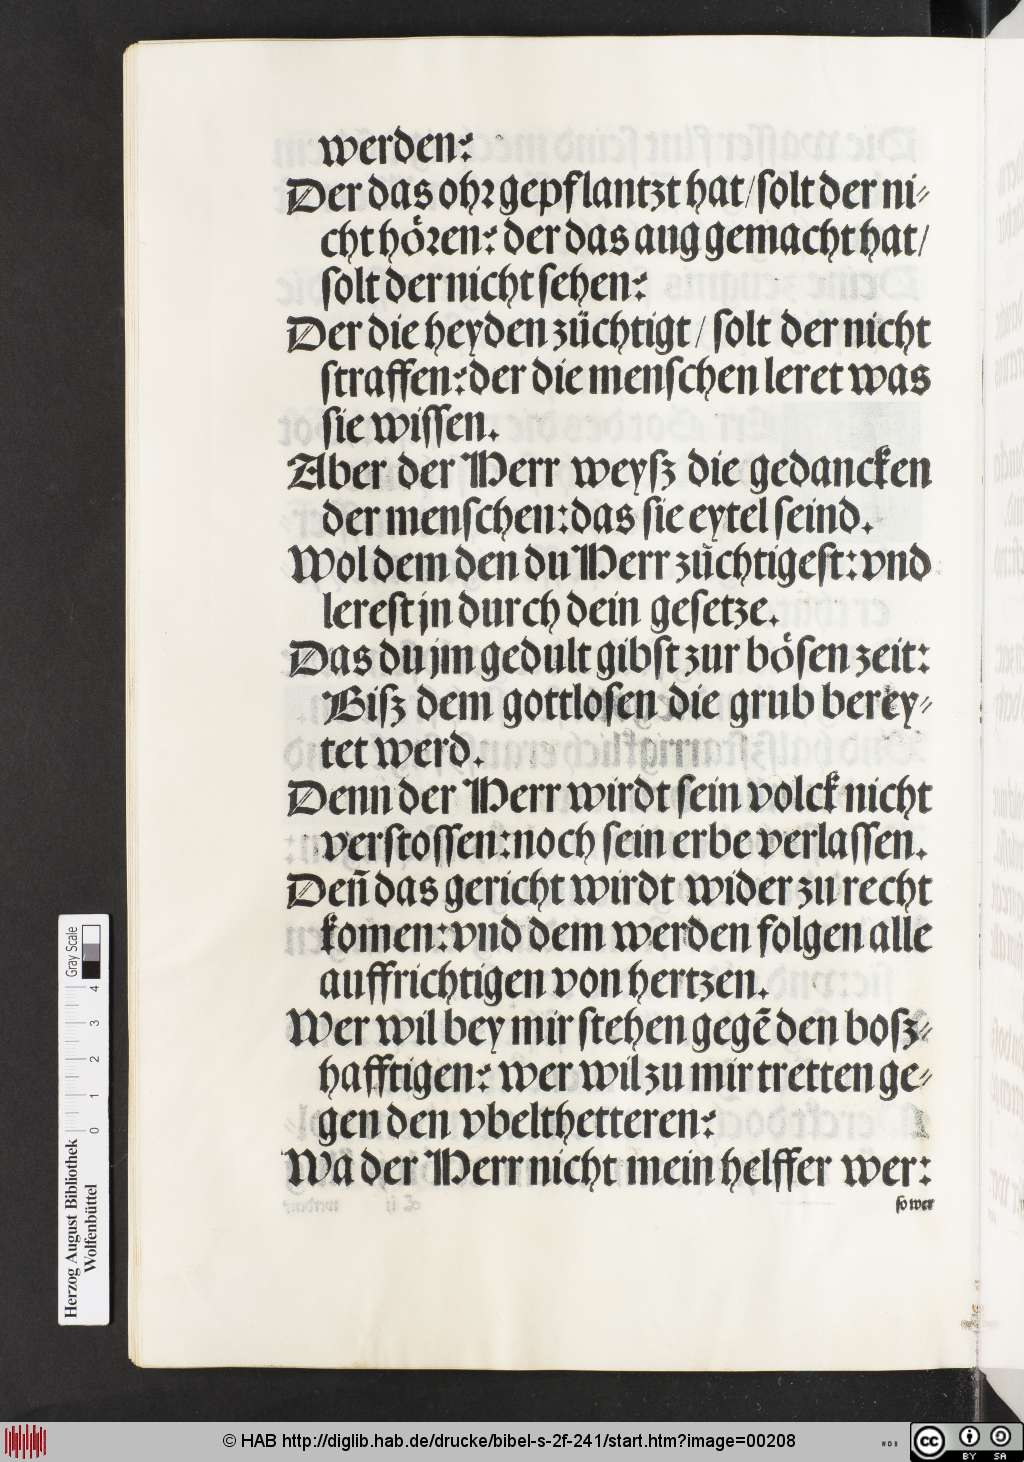 werden?
Der das ohr gepflantzt hat/ solt der ni-
cht hören? der das aug gemacht hat/
solt der nicht sehen?
Der die heyden züchtigt/ solt der nicht
straffen? der die menschen leret was
sie wissen.
Aber der Herr weysz die gedancken
der menschen: das sie eytel seind.
Wol dem den du Herr züchtigest: vnd
lerest jn durch dein gesetze.
Das du jm gedult gibst zur bösen zeit:
Bisz dem gottlosen die grub berey-
tet werd.
Denn der Herr wirdt sein volck nicht
verstossen: noch sein erbe verlassen.
Deñ das gericht wirdt wider zu recht
komen: vnd dem werden folgen alle
auffrichtigen von hertzen.
Wer wil bey mir stehen gegē den bosz-
hafftigen? wer wil zu mir tretten ge-
gen den vbelthetteren?
Wa der Herr nicht mein helffer wer:
so wer
Herzog August Bibliothek
Wolfenbüttel
0 1 2 3 4
Gray Scale
© HAB http://diglib.hab.de/drucke/bibel-s-2f-241/start.htm?image=00208
WDB
cc BY SA